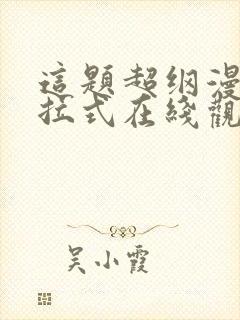 這題超纲漫
拉式在綫觀
吴小霞